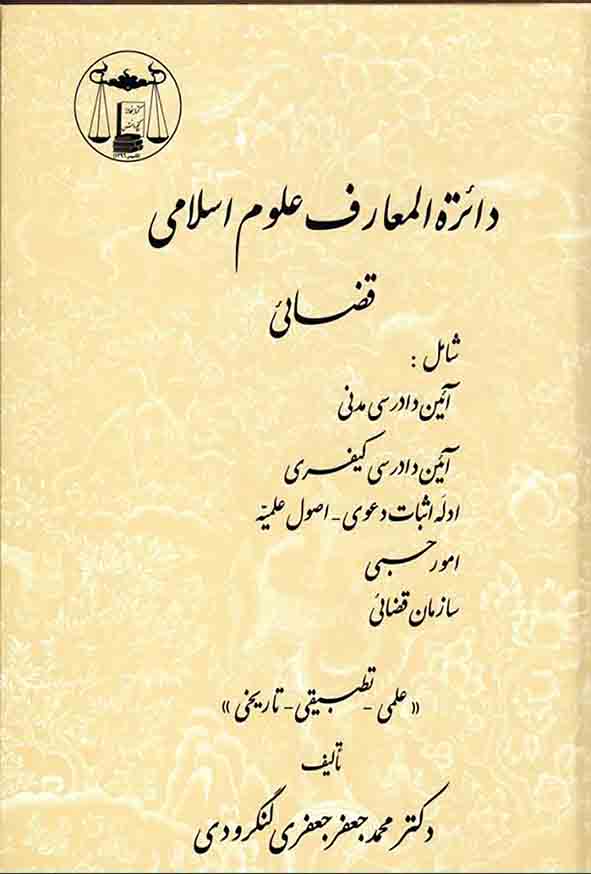 دائرة المعارف علوم اسلامی
قضائی
شامل :
آئین دادرسی مدنی
آئین دادرسی کیفری
ادله اثبات دعوی - اصول علمیّه
امور حسبی
سازمان قضائی
« علمی - تطبیقی - تاریخی »
تألیف
دکتر محمد جعفر جعفری لنگرودی